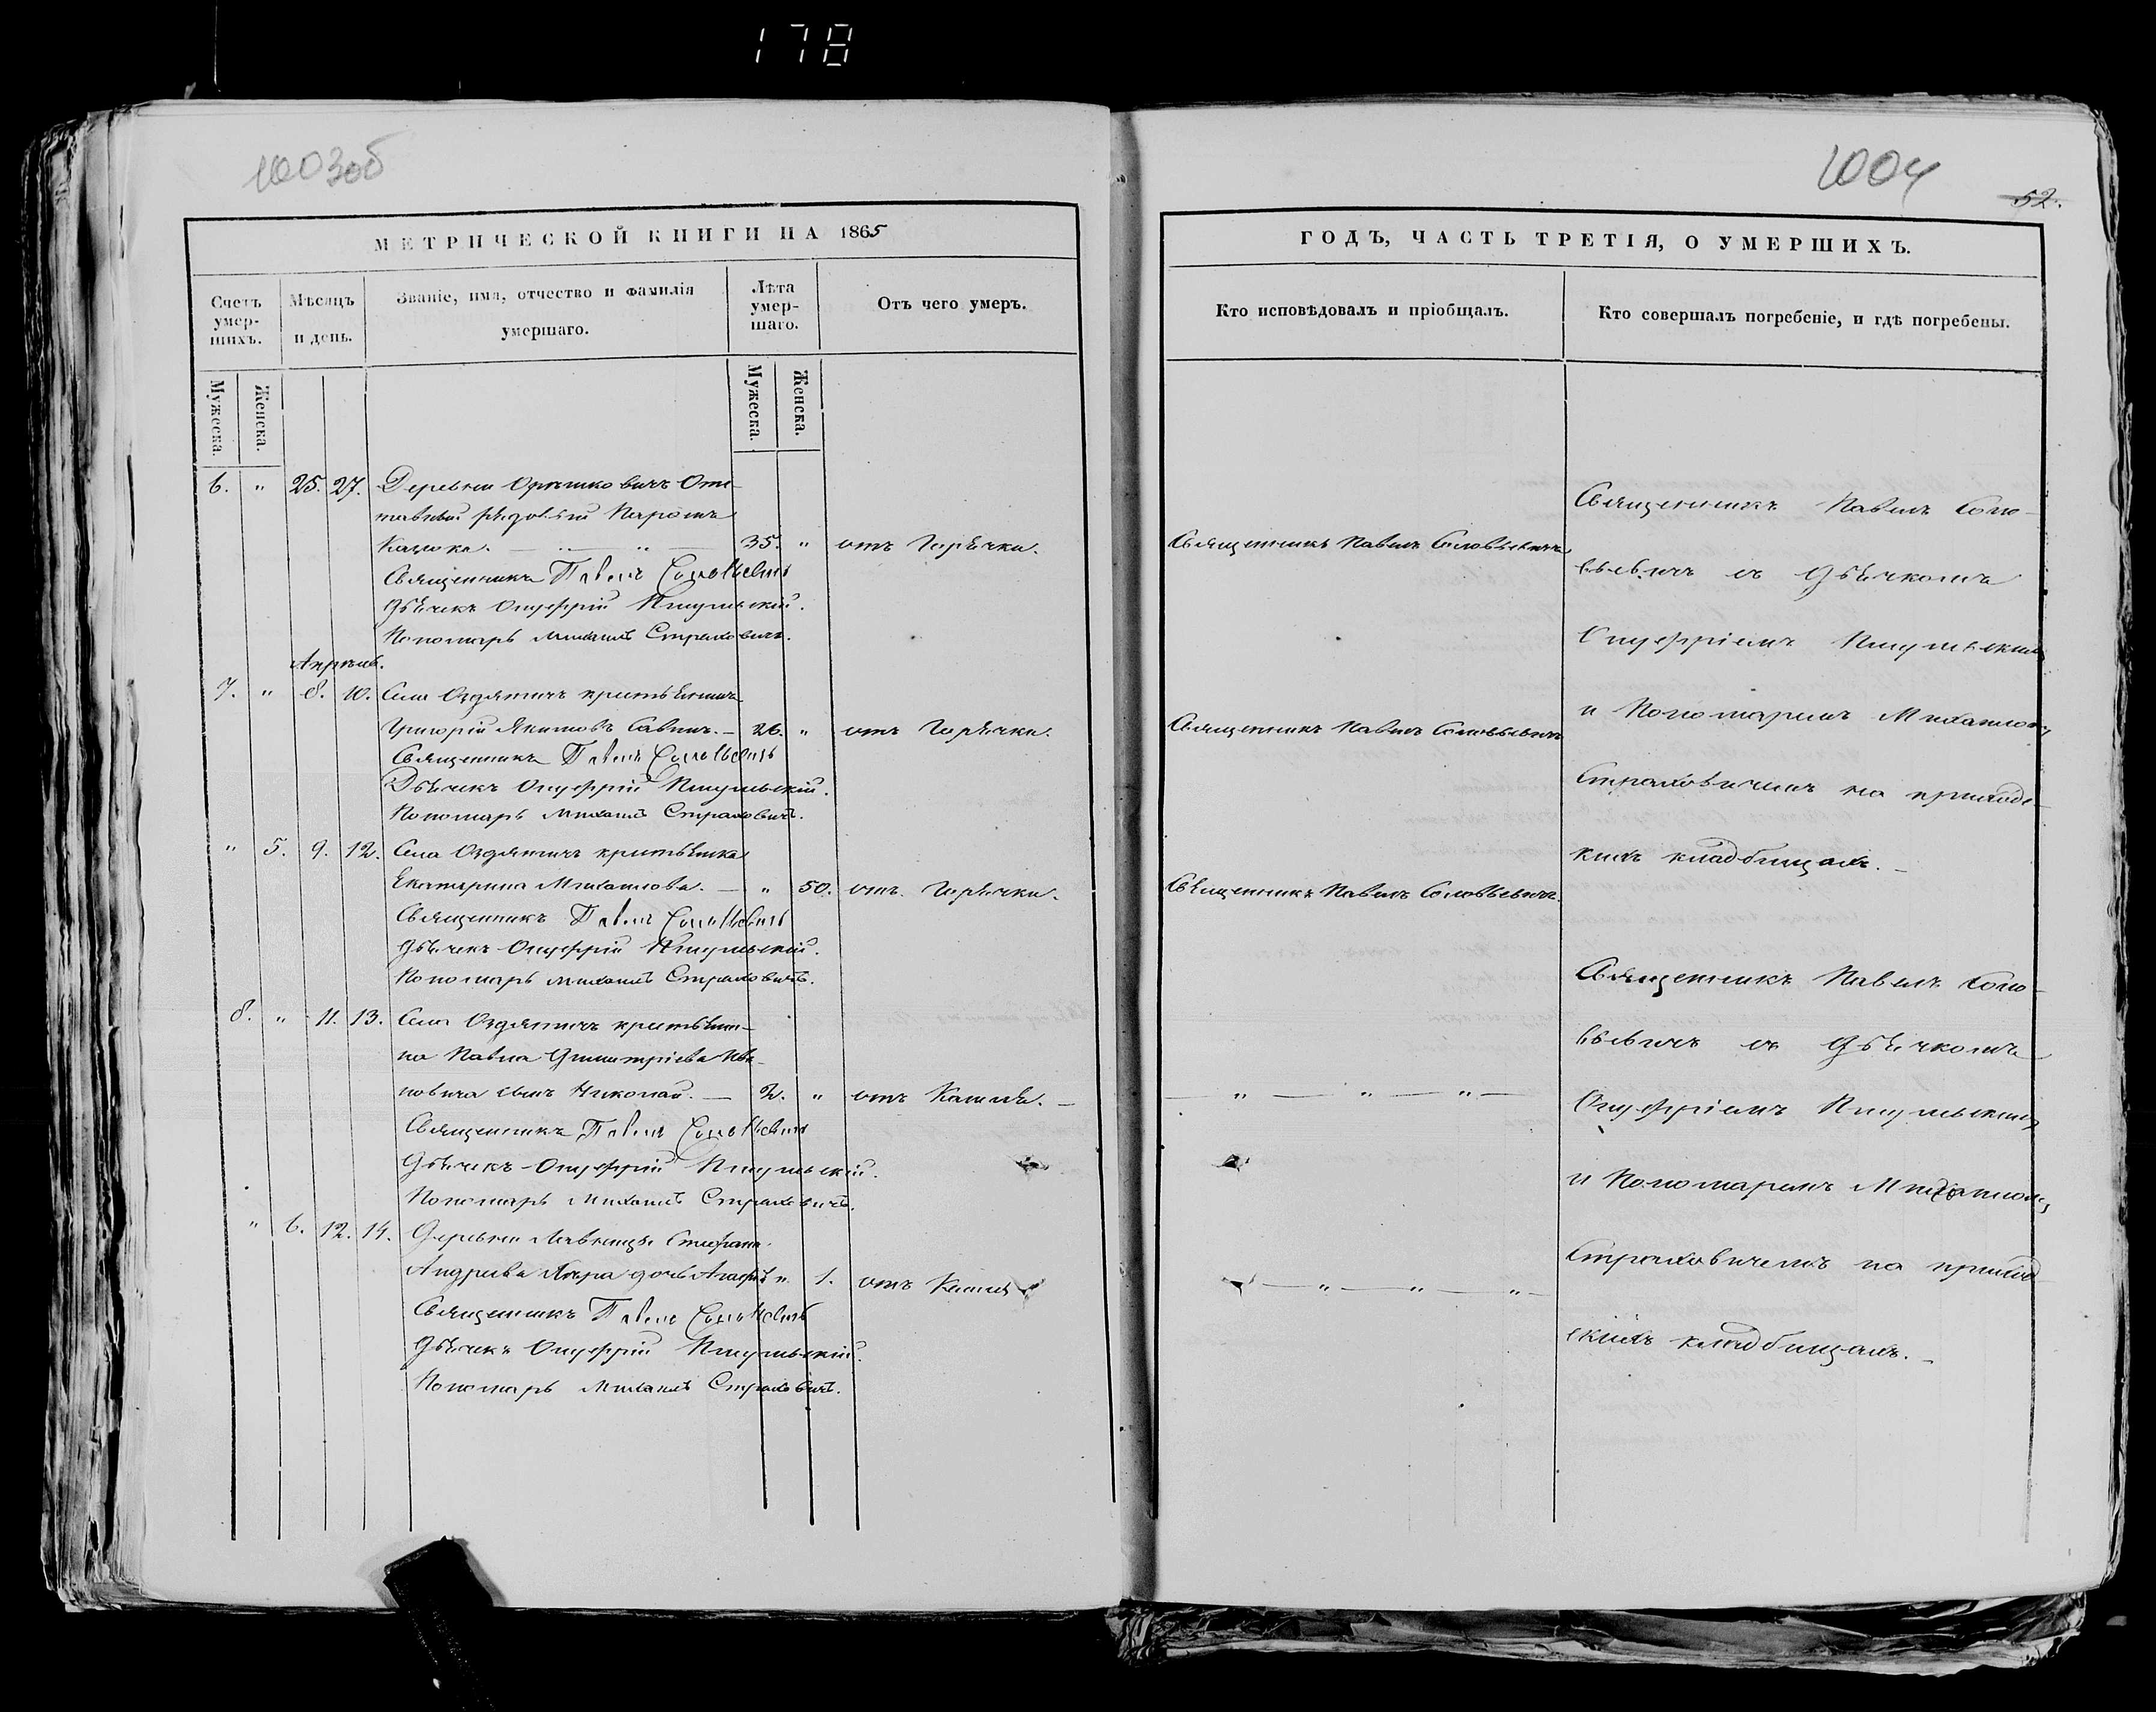 178
1003об
1004
52.
МЕТРИЧЕСКОЙ КНИГИ НА 1865
ГОДЪ, ЧАСТЬ ТРЕТІЯ, О УМЕРШИХЪ.
Счетъ умер-шихъ.
Мѣсяцъ и день.
Званіе, имя, отчество и фамилія умершаго.
Лѣта умер-шаго.
Отъ чего умеръ.
Кто исповѣдовалъ и пріобщалъ.
Кто совершалъ погребеніе, и гдѣ погребены.
Мужеска.
Женска.
Мужеска.
Женска.
6. " 25. 27. Деревни Орѣшковичъ Отс-
тавный рядовый
35. " отъ Горячки. Священникъ Павелъ Соловьевичъ
Священникъ Павелъ Соловьевичъ
Дьячекъ Онуфрій
Пономарь Михаилъ Страховичъ.
Апрѣль.
7. " 8. 10. Села Оздятичъ крестьянинъ
Григорій Якимовъ Савичъ. — 26. " отъ Горячки. Священникъ Павелъ Соловьевичъ
Священникъ Павелъ Соловьевичъ
Дьячекъ Онуфрій
Пономарь Михаилъ Страховичъ.
" 5. 9. 12. Села Оздятичъ крестьянка
Екатерина Михайлова. — " 50. отъ Горячки. Священникъ Павелъ Соловьевичъ.
Священникъ Павелъ Соловьевичъ
Дьячекъ Онуфрій
Пономарь Михаилъ Страховичъ.
8. " 11. 13. Села Оздятичъ крестьяни-
на Павла Димитріева Ива-
новича сынъ Николай. — 2. " отъ Кашля. — " — " — " —
Священникъ Павелъ Соловьевичъ
Дьячекъ Онуфрій
Пономарь Михаилъ Страховичъ.
" 6. 12. 14. Деревни Стефана
Андреева дочь " 1. отъ Кашля — " — " — " —
Священникъ Павелъ Соловьевичъ
Дьячекъ Онуфрій
Пономарь Михаилъ Страховичъ.
Священникъ Павелъ Соло-
вьевичъ съ Дьячкомъ
Онуфріемъ
и Пономаремъ Михаиломъ
Страховичемъ на приходс-
кихъ кладбищахъ. —
Священникъ Павелъ Соло-
вьевичъ съ Дьячкомъ
Онуфріемъ
и Пономаремъ Михаиломъ
Страховичемъ на приход-
скихъ кладбищахъ. —